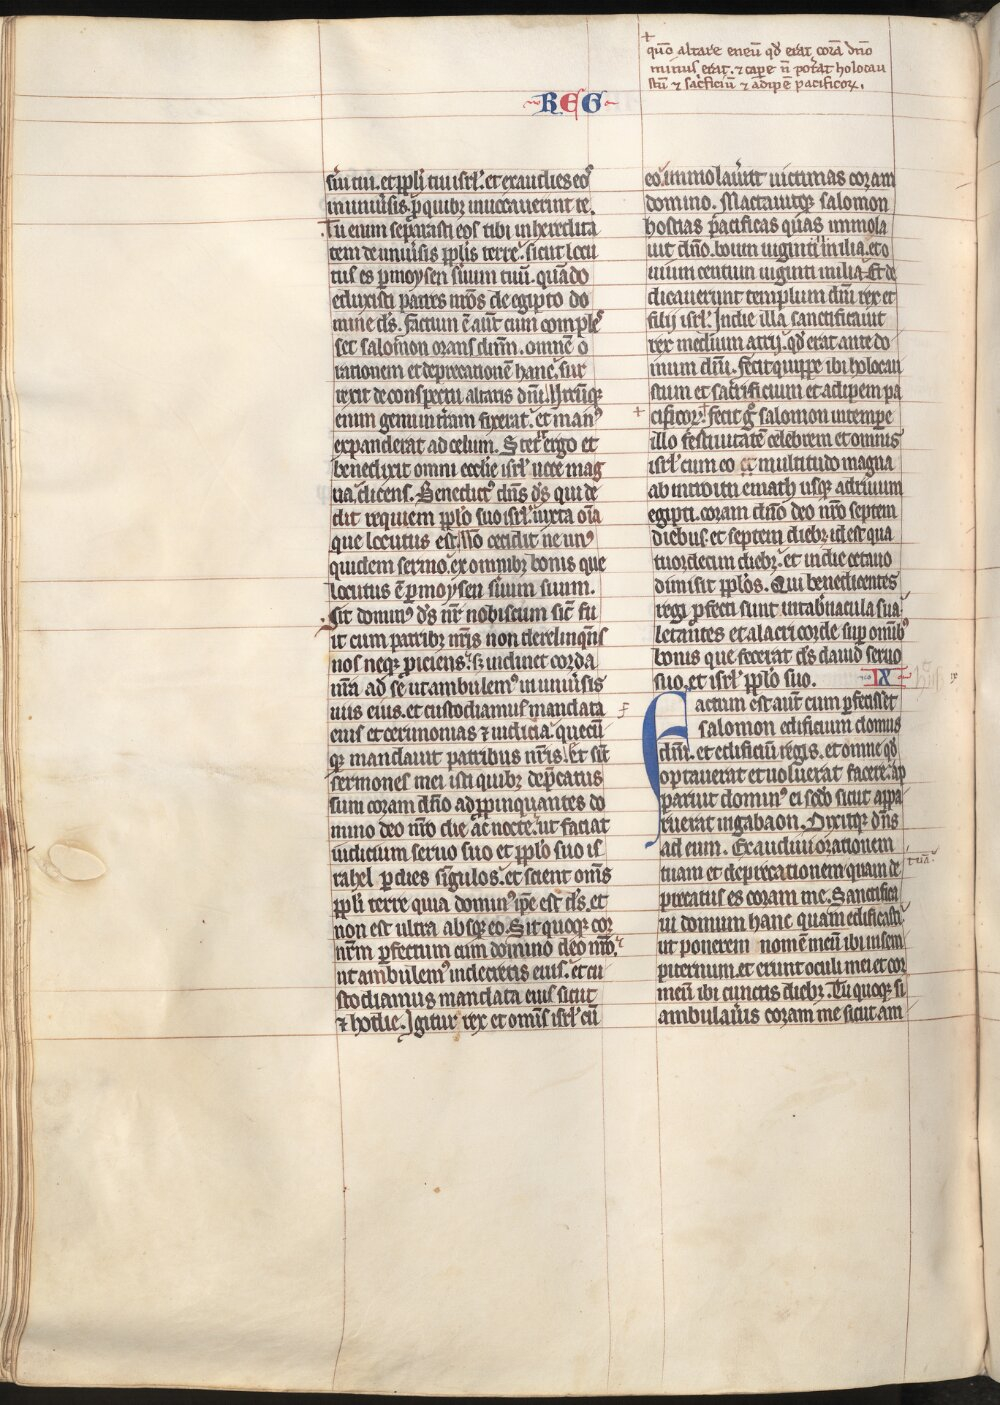 +
quō altare eneū qd̄ erat corā dn̄o
minus erat. ⁊ capē n̄ potat holocau
stū ⁊ sac̄ficiū ⁊ adipē pacificoꝝ.
REG
sūi tui. et ppl̄i tui isrl̄. et exaudies eoſ
in uniu̇sis. p̄ quibꝫ inuocauerint te.
Tu enim sepārasti eos tibi in heredita
tem de uniu̇sis ppl̄is terre. sicut locu
tus es p moysen s̄uum tuū. quādo
eduxisti patres nr̄os de egipto do
mine ds̄. Factum ē aūt cum comple
set salomon orans dn̄m. omnē o
rationem et deprecationē hanc. sur
rexit de conspectu altaris dn̄i. Utrūqꝫ
enim genu in t̄ram fixerat. et man⁹
expanderat ad celum. Stet̄ ergo et
benedixit omni ecclīe isrl̄ uoce mag
na dicens. Benedict⁹ dn̄s ds̄ qui de
dit requiem ppl̄o suo isrl̄. iuxta oīa
que locutus est. Nō cecidit ne un⁹
quidem sermo. ex omnibꝫ bonis que
locutus ē p moysen s̄uum suum.
Sit domin⁹ ds̄ nr̄ nobiscum sic̄ fu
it cum patribꝫ nr̄is non derelinqns̄
nos neqꝫ piciens. sꝫ inclinet corda
nr̄a ad se ut ambulem⁹ in uniu̇sis
uiis eius. et custodiamus mandata
eius et cerimonias ⁊ iudicia. quecū
qꝫ mandauit patribus nr̄is. Et sīt
sermones mei isti quibꝫ dep̄catus
sum coram dn̄o adp̄pinquantes do
mino deo nr̄o die āc nocte. ut faciat
iudicium seruo suo et ppl̄o suo is
rahel p dies singulos. et scient om̄s
ppl̄i terre quia domin⁹ ip̄e est ds̄. et
non est ultra absqꝫ eo. Sit quoqꝫ cor
nr̄m pfectum cum domino deo nr̄o.
ut ambulem⁹ in decretis eius. et cu
stodiamus mandata eius sicut
⁊ hodie. Igitur rex et om̄s isrl̄ cū
eo. immolau̇nt uictimas coram
domino. Mactauitqꝫ salomon
hostias pacificas quas immola
uit dn̄o. boum uiginti ii milia. et o
uium centum uiginti milia. Et de
dicauerunt templum dn̄i rex et
filii isrl̄. In die illa sanctificauit
rex medium atrii. qd̄ erat ante do
mum dn̄i. fecit quippe ibi holocau
stum et sac̄ficium et adipem pa
+ cificoꝝ.+ fecit ḡ salomon in tempe
illo festiuitatē celebrem et omnis
isrl̄ cum eo et multitudo magna
ab introitu emath usqꝫ ad riuum
egipti. coram dn̄o deo nr̄o septem
diebus. et septem diebꝫ id est qua
tuordecim diebꝫ. et in die octauo
dimisit ppl̄os. Qui benedicentes
regi pfecti sunt in tab̄nacula sua.
letantes et alacri corde sup omib⁹
bonis que fecerat ds̄ dauid seruo
suo. et isrl̄ ppl̄o suo.
IX
Factum est aūt cum pfecisset
salomon edificium domus
dn̄i. et edificiū regis. et omne qd̄
optauerat et uoluerat facere. ap
paruit domin⁹ ei scd̄o sicut appa
ruerat in gabaon. Dixitqꝫ dn̄s
ad eum. Exaudiui orationem
tuā.
tuam et deprecationem quam de
p̄catus es coram me. Sanctifica
ui domum hanc quam edificasti.
ut ponerem nomē meū ibi in sem
piternum. et erunt oculi mei et cor
meū ibi cunctis diebꝫ. Tu quoqꝫ si
ambulau̇is coram me sicut am